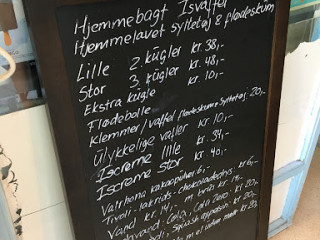 Hjemmebagt Isvaffel
Hjemmelavet syltetøj & flødeskum
Lille 2 kugler kr. 38,-
Stor 3. kugler kr. 48,-
Ekstra kugle kr. 10,-
Flødebolle
Klemmer/vaffel flødeskum & syltetøj 20,-
Ulykkelige vafler kr. 10,-
Iscreme lille kr. 34,-
Iscreme stor kr. 40,-
Valrhona kakaopulver 6,-
Tivoli lakrids chokoladedrys, kr 6,-
Vand kr. 14,-
Danskvand, Cola, Cola Zero kr. 20,-
kr. 20,-